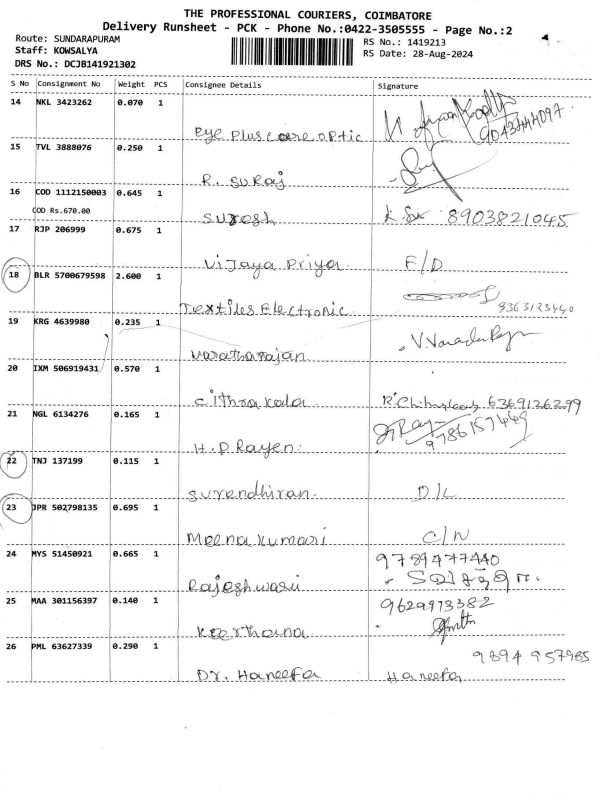 THE PROFESSIONAL COURIERS, COIMBATORE
Delivery Runsheet - PCK - Phone No.:0422-3505555 - Page No.:2
Route: SUNDARAPURAM
Staff: KOWSALYA
DRS No.: DCJB141921302
RS No.: 1419213
RS Date: 28-Aug-2024
S No Consignment No Weight PCS Consignee Details Signature
14 NKL 3423262 0.070 1
Eye Plus care optic
15 TVL 3888076 0.250 1
R. SURaj
16 COD 1112150003 0.645 1
COD Rs.670.00
Suresh 8903821045
17 RJP 206999 0.675 1
Vijaya Priya F/D
18 BLR 5700679598 2.600 1
Textiles Electronic 9363123440
19 KRG 4639980 0.235 1
Varatharajan
20 IXM 506919431 0.570 1
Cithra kala 6369126299
21 NGL 6134276 0.165 1
H.P Rayen 9786157489
22 TNJ 137199 0.115 1
Surendhiran. D/L
23 JPR 502798135 0.695 1
Meena kumari C/N
24 MYS 51450921 0.665 1
9789477440
Rajeshwari
25 MAA 301156397 0.140 1
9629973382
Keerthana
26 PML 63627339 0.290 1
9894 957985
Dr. Haneefa Haneefa